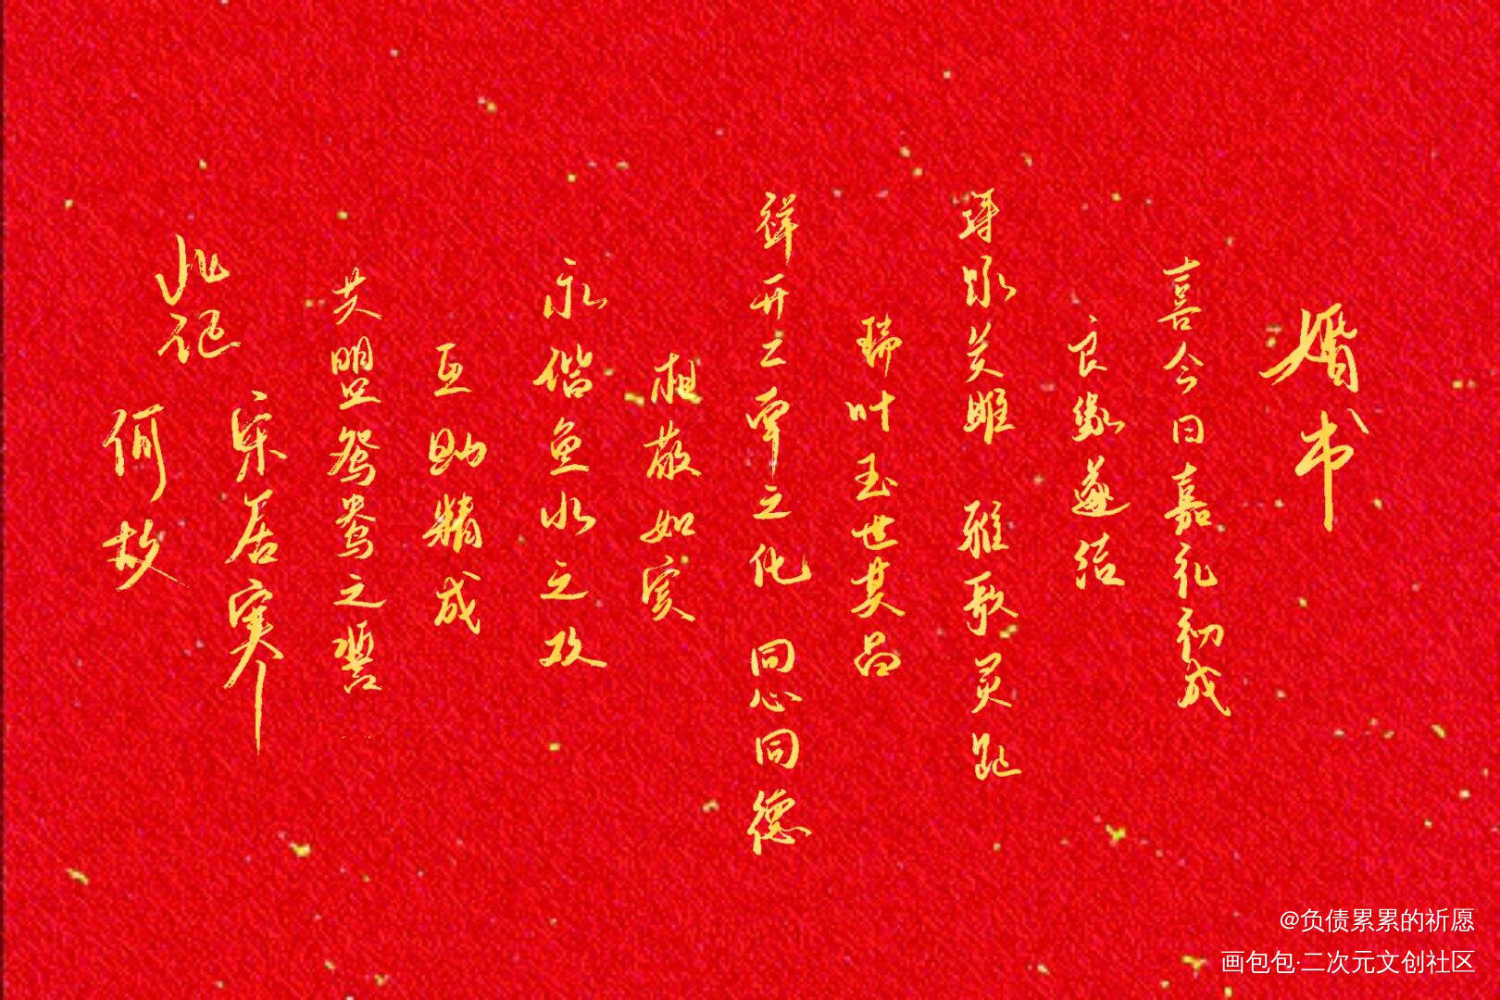 婚书
喜今日嘉礼初成
良缘遂结
诗咏关雎 雅歌灵趾
瑞叶五世其昌
祥开二南之化 同心同德
相敬如宾
永偕鱼水之欢
互助精诚
共盟鸳鸯之誓
此证
宋居寒
何故
@负债累累的祈愿
画包包·二次元文创社区